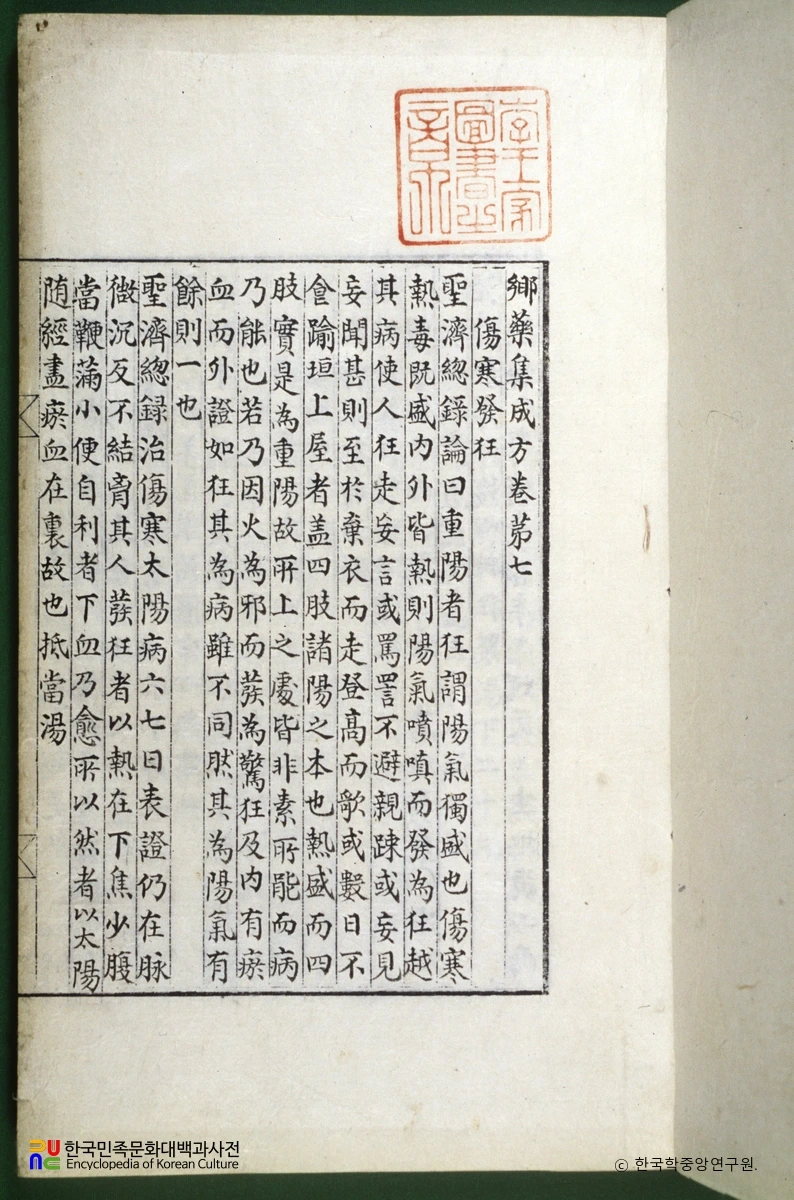 鄕藥集成方卷苐七
傷寒發狂
聖濟緫録論曰重陽者狂謂陽氣獨盛也傷寒
熱毒旣盛内外皆熱則陽氣噴嗔而發為狂越
其病使人狂走妄言或罵詈不避親踈或妄見
妄聞甚則至於棄衣而走登高而歌或數日不
食踰垣上屋者盖四肢諸陽之本也熱盛而四
肢實是為重陽故所上之處皆非素所能而病
乃能也若乃因火為邪而發為驚狂及内有瘀
血而外證如狂其為病雖不同然其為陽氣有
餘則一也
聖濟緫録治傷寒太陽病六七日表證仍在脉
微沉反不結胷其人發狂者以熱在下焦少腹
當鞕滿小便自利者下血乃愈所以然者以太陽
随經盡瘀血在裏故也抵當湯
한국민족문화대백과사전
Encyclopedia of Korean Culture
© 한국학중앙연구원.